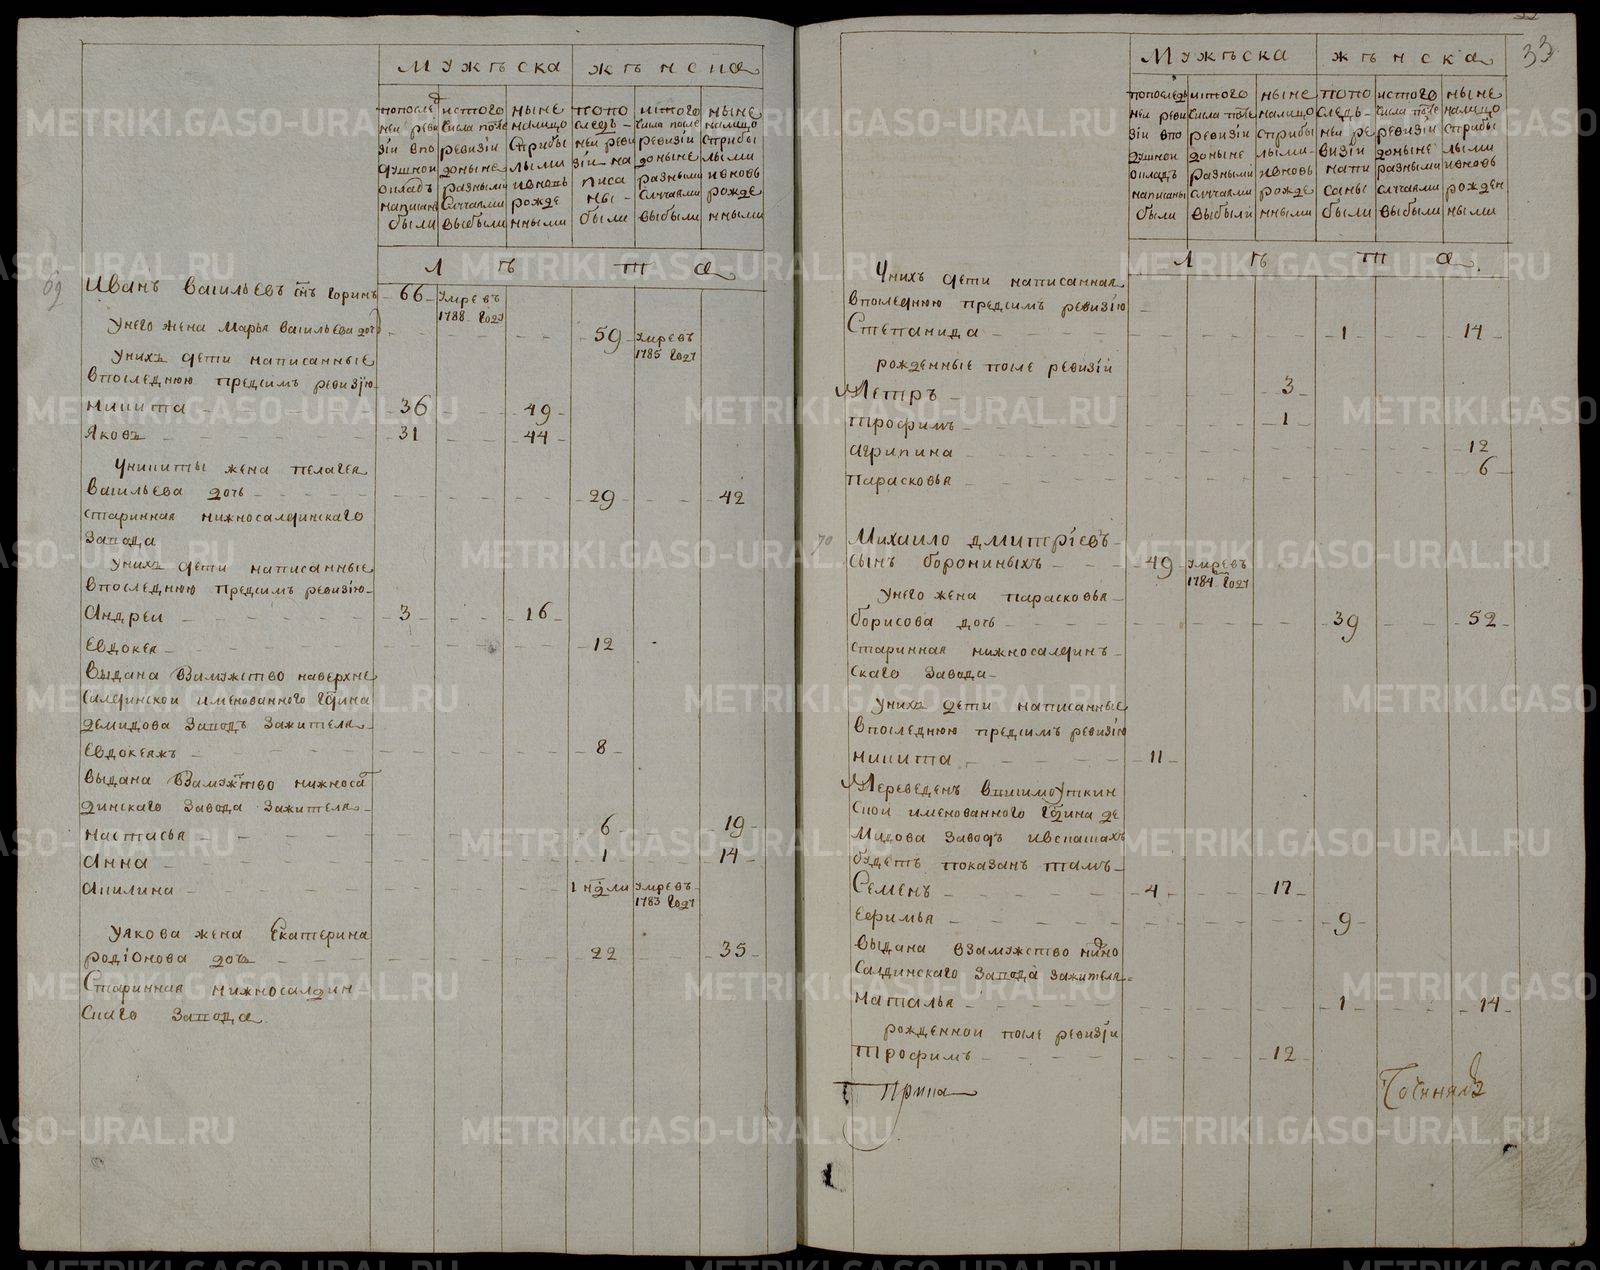 Мужъска жънска
попослѣ ней реви зіи впо душной окладъ написаны были
истого числа после ревизіи доныне разными случаями выбыли
ныне налицо сприбы лыми ивновь рожде нными
попо следъ ней реви зіи на писа ны были
истого числа после ревизіи доныне разными случаями выбыли
ныне налицо сприбы лыми ивновь рожде нными
лъта
69
Иванъ васильевъ снъ горинъ 66 умревъ 1788 году
Унего жена Марья васильева дочь 59 умревъ 1785 году
Унихъ дети написанные
впоследнюю предсимъ ревизію
никита 36 49
Яковъ 31 44
Уникиты жена пелагея
васильева дочь 29 42
старинная нижносалдинскаго
завода
Унихъ дети написанные
впоследнюю предсимъ ревизію
Андреи 3 16
Евдокея 12
выдана взамужство наверхне
салдинской именованного гдина
демидова заводъ зажителя
Евдокеяжъ 8
выдана взамужство нижноса
динскаго завода зажителя
настасья 6 19
Анна 1 14
Акилина 1 ндли умревъ 1783 году
Уякова жена Екатерина
родіонова дочь 22 35
Старинная нижносалдин
скаго завода
33
Мужъска жънска
попоследъ ней реви зіи впо душной окладъ написаны были
истого числа после ревизіи доныне разными случаями выбыли
ныне налицо сприбы лыми ивновь рожде нными
попо следъ ней ре визіи напи саны были
истого числа после ревизіи доныне разными случаями выбыли
ныне налицо сприбы лыми ивновь рожден ными
лъта
Унихъ дети написанная
впоследнюю предсимъ ревизію
Степанида 1 14
рожденные после ревизіи
Петръ 3
трофимъ 1
агрипина 12
парасковья 6
70
Михаило дмитріевъ
сынъ борониныхъ 49 умревъ 1784 году
Унего жена парасковья
борисова дочь 39 52
старинная нижносалдинъ
скаго завода
Унихъ дети написанные
впоследнюю предсимъ ревизію
никита 11
Переведенъ вписимоуткин
ской именованного гдина де
мидова заводъ ивсказкахъ
будетъ показанъ тамъ
Семенъ 4 17
Ефимья 9
выдана взамужство нижно
Салдинскаго завода зажителя
наталья 1 14
рожденной после ревизіи
трофимъ 12